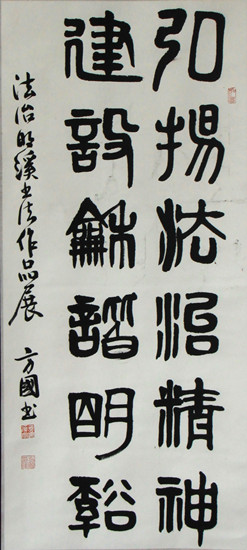 弘揚法治精神
建設龢諧明谿
法治明溪书法作品展
方國书